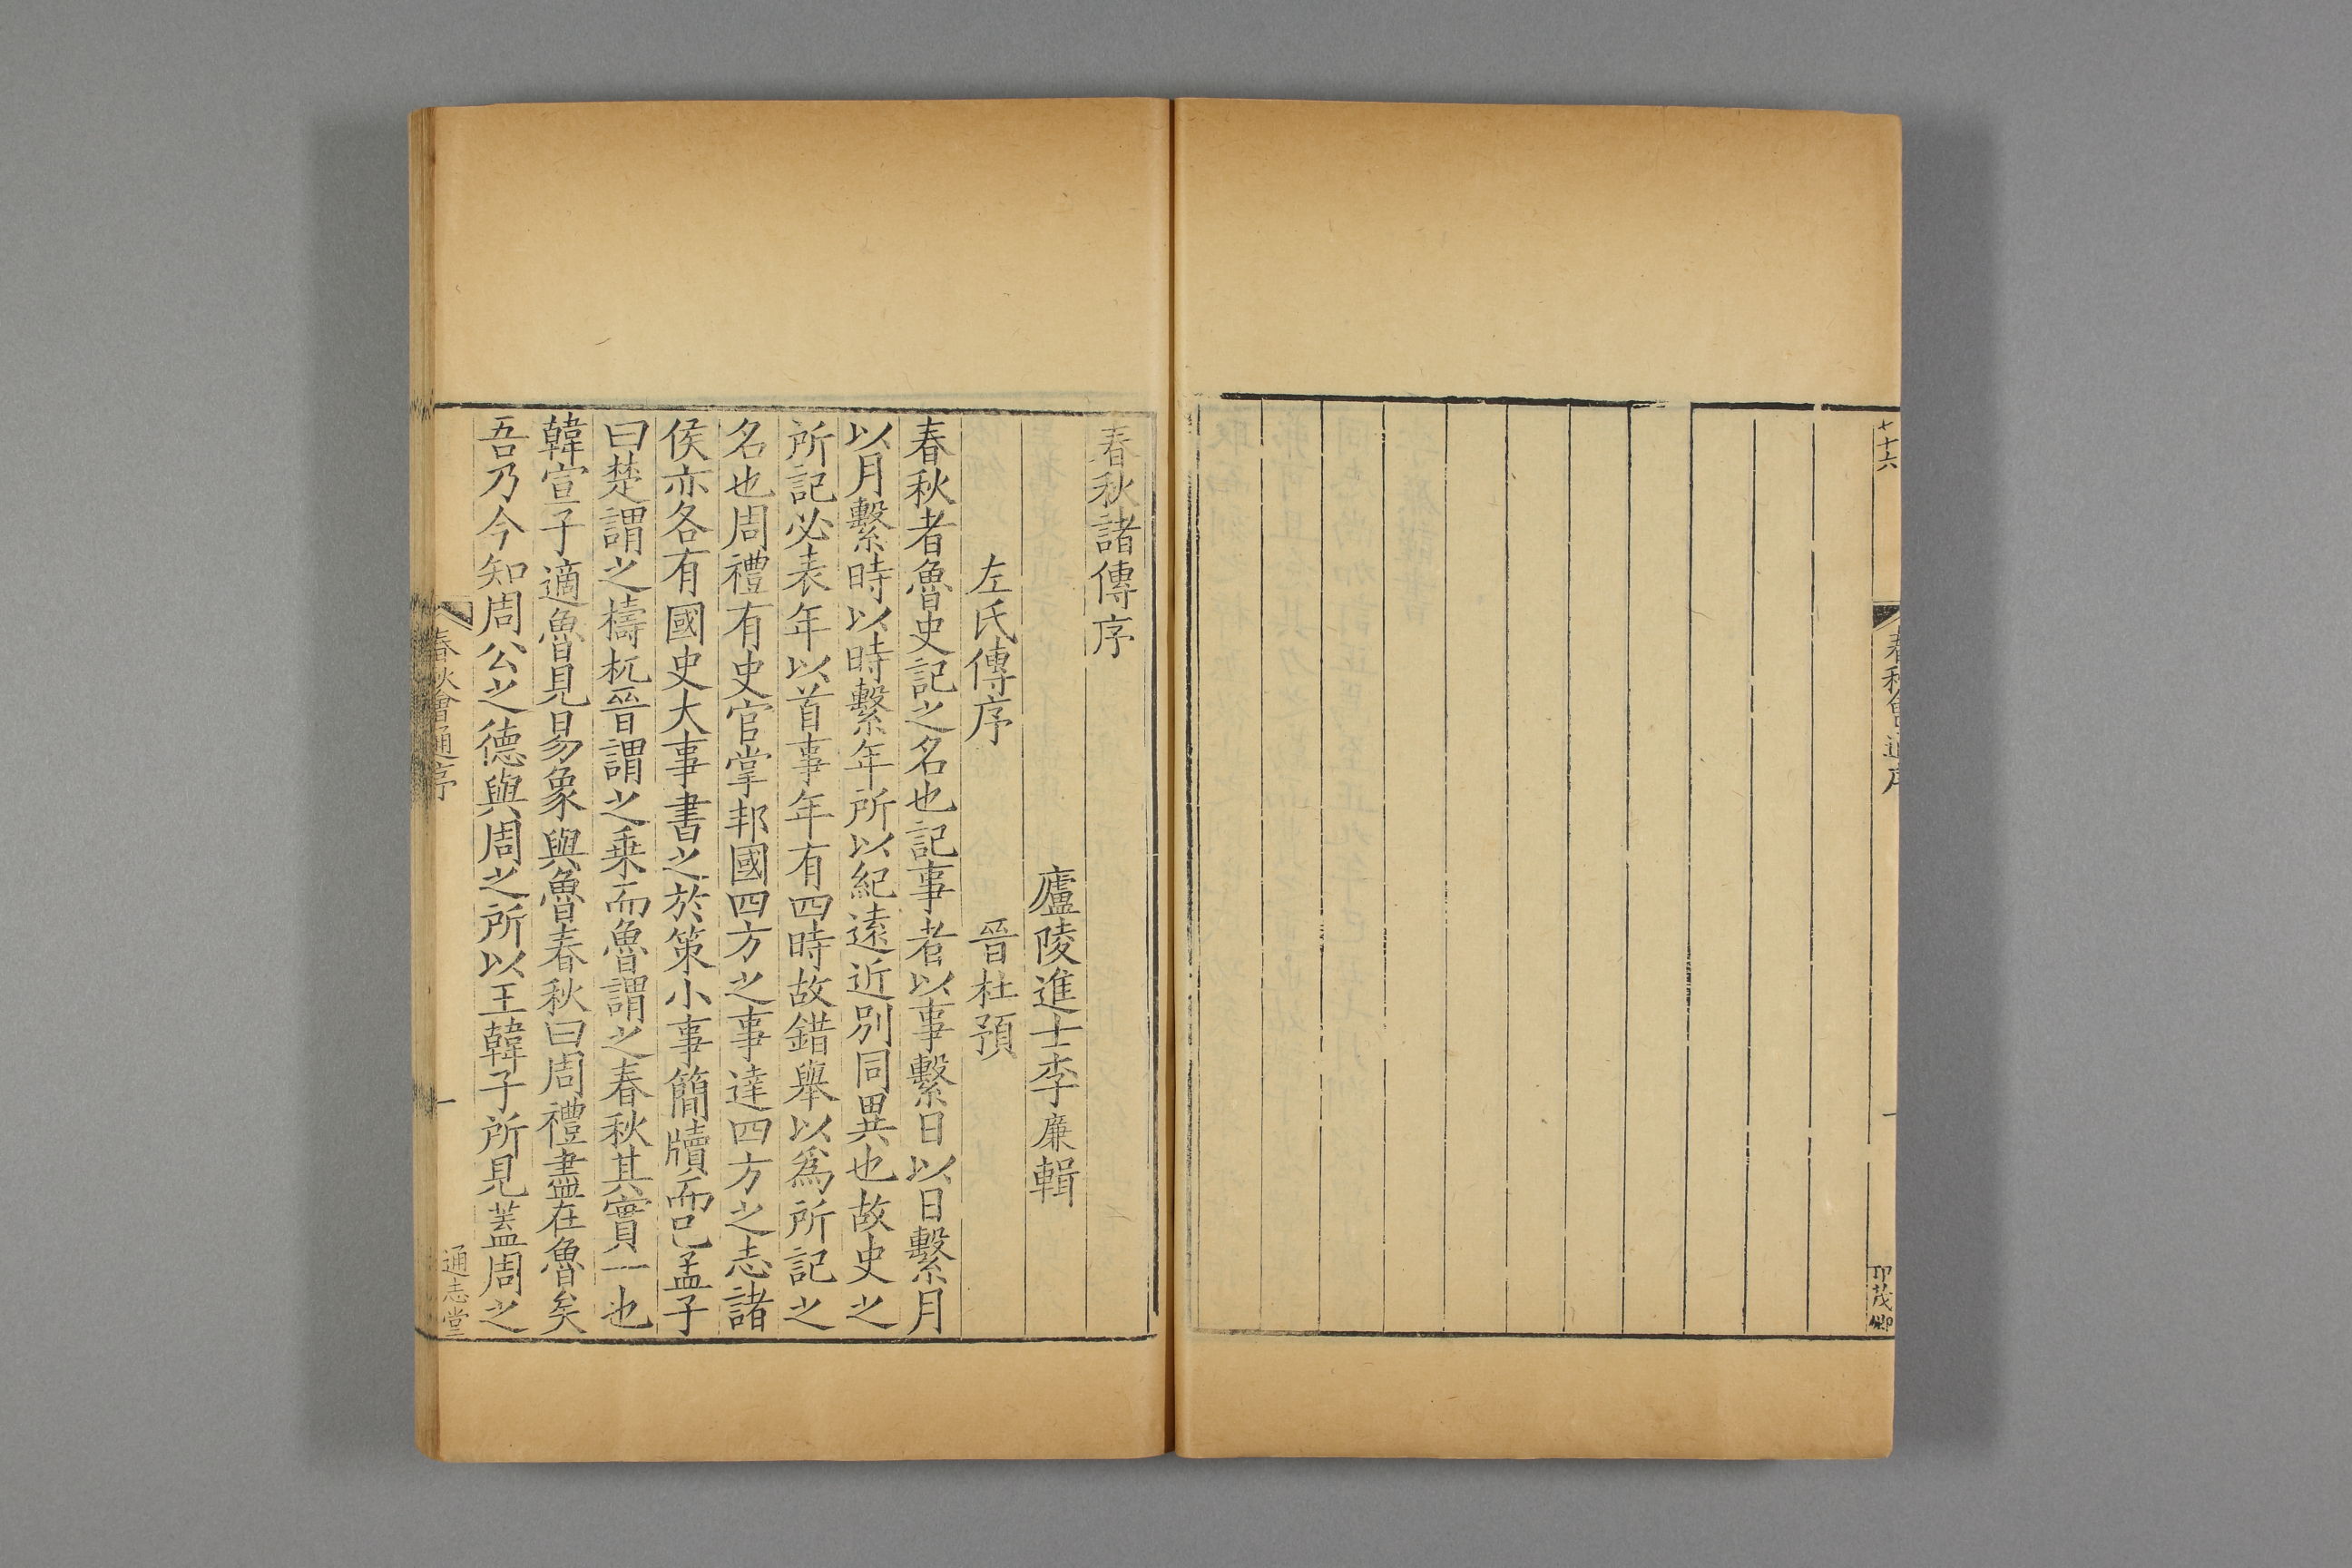 十六
春秋會通序
一
春秋諸傳序
廬陵進士李廉輯
左氏傳序 晉杜預
春秋者魯史記之名也記事者以事繫日以日繫月
以月繫時以時繫年所以紀遠近別同異也故史之
所記必表年以首事年有四時故錯舉以爲所記之
名也周禮有史官掌邦國四方之事達四方之志諸
侯亦各有國史大事書之於策小事簡牘而已孟子
曰楚謂之檮杌晉謂之乗而魯謂之春秋其實一也
韓宣子適魯見易象與魯春秋曰周禮盡在魯矣
吾乃今知周公之德與周之所以王韓子所見蓋周之
春秋會通序
一
通志堂